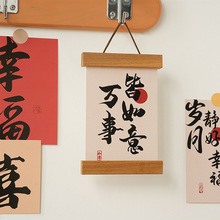 幸福
喜
万事
皆如意
岁月
静好幸福